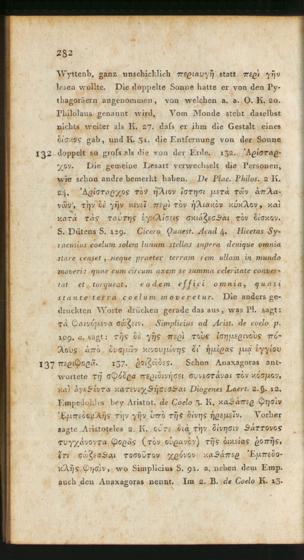 282
Wyttenb. ganz unschicklich περιαυγῆ statt περὶ γῆν
lesen wollte. Die doppelte Sonne hatte er von den Py-
thagoräern angenommen, von welchen a. a. O. K. 20.
Philolaus genannt wird, Vom Monde steht daselbst
nichts weiter als K. 27. daſs er ihm die Gestalt eines
δίσκος gab, und K. 31. die Entfernung von der Sonne
132 doppelt so groſs als die von der Erde. 132. Ἀρίσταρ-
χον. Die gemeine Lesart verwechselt die Personen,
wie schon andre bemerkt haben. De Plac. Philos. 2 K.
24. Ἀρίσταρχος τὸν ἥλιον ἵστησι μετὰ τῶν ἀπλα-
νῶν, τὴν δὲ γῆν κινεῖ περὶ τὸν ἡλιακὸν κύκλον, καὶ
κατὰ τὰς ταύτης ἐγκλίσεις σκιάζεσθαι τὸν δίσκον.
S. Dütens S. 129. Cicero Quaest. Acad 4. Hicetas Sy-
racusius coelum solem lunam stellas supera denique omnia
stare censet, neque praeter terram rem ullam in mundo
moveri: quae cum circum axem se summa celeritate conver-
tat et torqueat, eadem effici omnia, quasi
stante terra coelum moveretur. Die anders ge-
druckten Worte drücken gerade das aus, was Pl. sagt:
τὰ φαινόμενα σώζειν. Simplicius ad Arist. de coelo p.
109. a. sagt: τῆς δὲ γῆς περὶ τοὺς ἰσημερινοὺς πό-
λους ἀπὸ δυσμῶν κινουμένης δι' ἡμέρας μιᾶς ἔγγιστα
137 περιφοράν. 137. ῥοιζώδει. Schon Anaxagoras ant-
wortete τῇ σφόδρα περιδινήσει συνιστάναι τὸν κόσμον,
καὶ ἀνεθέντα κατενεχθήσεσθαι Diogenes Laert. 2. §. 12.
Empedokles bey Aristot. de Coelo 3. K. καθάπερ φησὶν
Ἐμπεδοκλῆς τὴν γῆν ὑπὸ τῆς δίνης ἠρεμεῖν. Vorher
sagte Aristoteles 2. K. οὔτε διὰ τὴν δίνησιν θάττονος
τυγχάνοντα φορᾶς (τὸν οὐρανὸν) τῆς οἰκείας ῥοπῆς,
ἔτι σώζεσθαι τοσοῦτον χρόνον καθάπερ Ἐμπεδο-
κλῆς φησὶν, wo Simplicius S. 91. a. neben dem Emp.
auch den Anaxagoras nennt. Im 2. B. de Coelo K. 13.